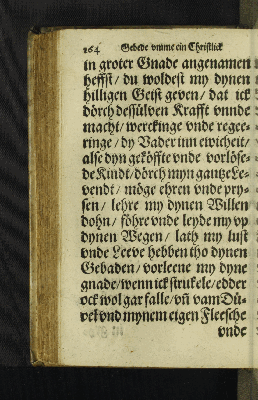 164 Gebede vmme ein Christlick
in groter Gnade angenamen
heffst / du woldest my dynen
hilligen Geist geven / dat ick
dörch dessülven Krafft vnnde
macht / werckinge vnde regee-
ringe / dy Vader inn ewicheit /
alse dyn geköffte vnde vorlöse-
de Kindt / dörch myn gantze Le-
vendt / möge ehren vnde pry-
sen / lehre my dynen Willen
dohn / föhre vnde leyde my vp
dynen Wegen / lath my lust
vnde Leeve hebben tho dynen
Gebaden / vorleene my dyne
gnade / wenn ick strukele / edder
ock wol gar falle / vñ vam Dü-
vel vnd mynem eigen Fleesche
vnde